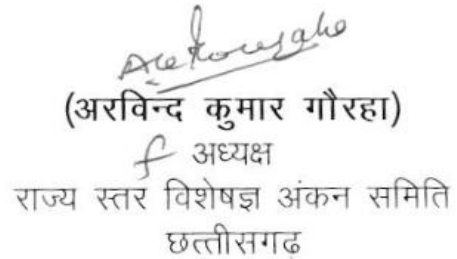 (अरविन्द कुमार गौरहा)
अध्यक्ष
राज्य स्तर विशेषज्ञ अंकन समिति
छत्तीसगढ़